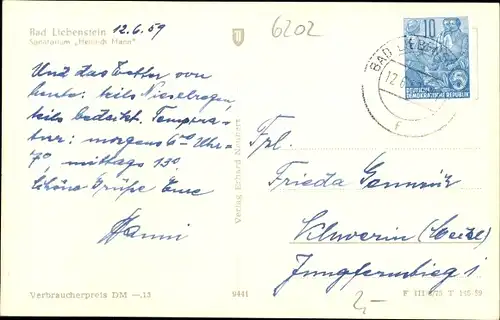 Bad Liebenstein 12.6.59
Sanatorium „Heinrich Mann"
6202
10
DEUTSCHE
DEMOKRATISCHE REPUBLIK
5
BAD LIEBENSTEIN
12.6.
Und das Wetter von
heute: teils Nieselregen,
teils bedeckt. Tempera-
tur: morgens 6⁰⁰ Uhr-
7°, mittags 13°.
Schöne Grüße Eure
Hanni
Verlag Erhard Neubert
Frl.
Frieda
Schwerin
Jungfernstieg 1
Verbraucherpreis DM —,15
9441
2,-